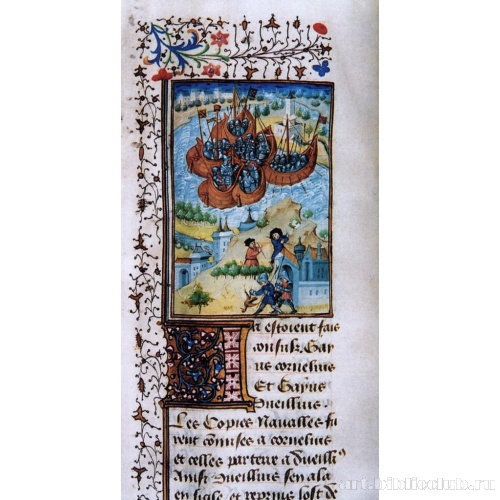 Ia estoient fais
consulz. Gay
us cornelius
Et Gayus
Dueillius.
Les Copies Navalles fu
rent comises a cornelius
et celles par terre a dueilli
Dueillius sen ala
en sicile et de
art.biblioclub.ru